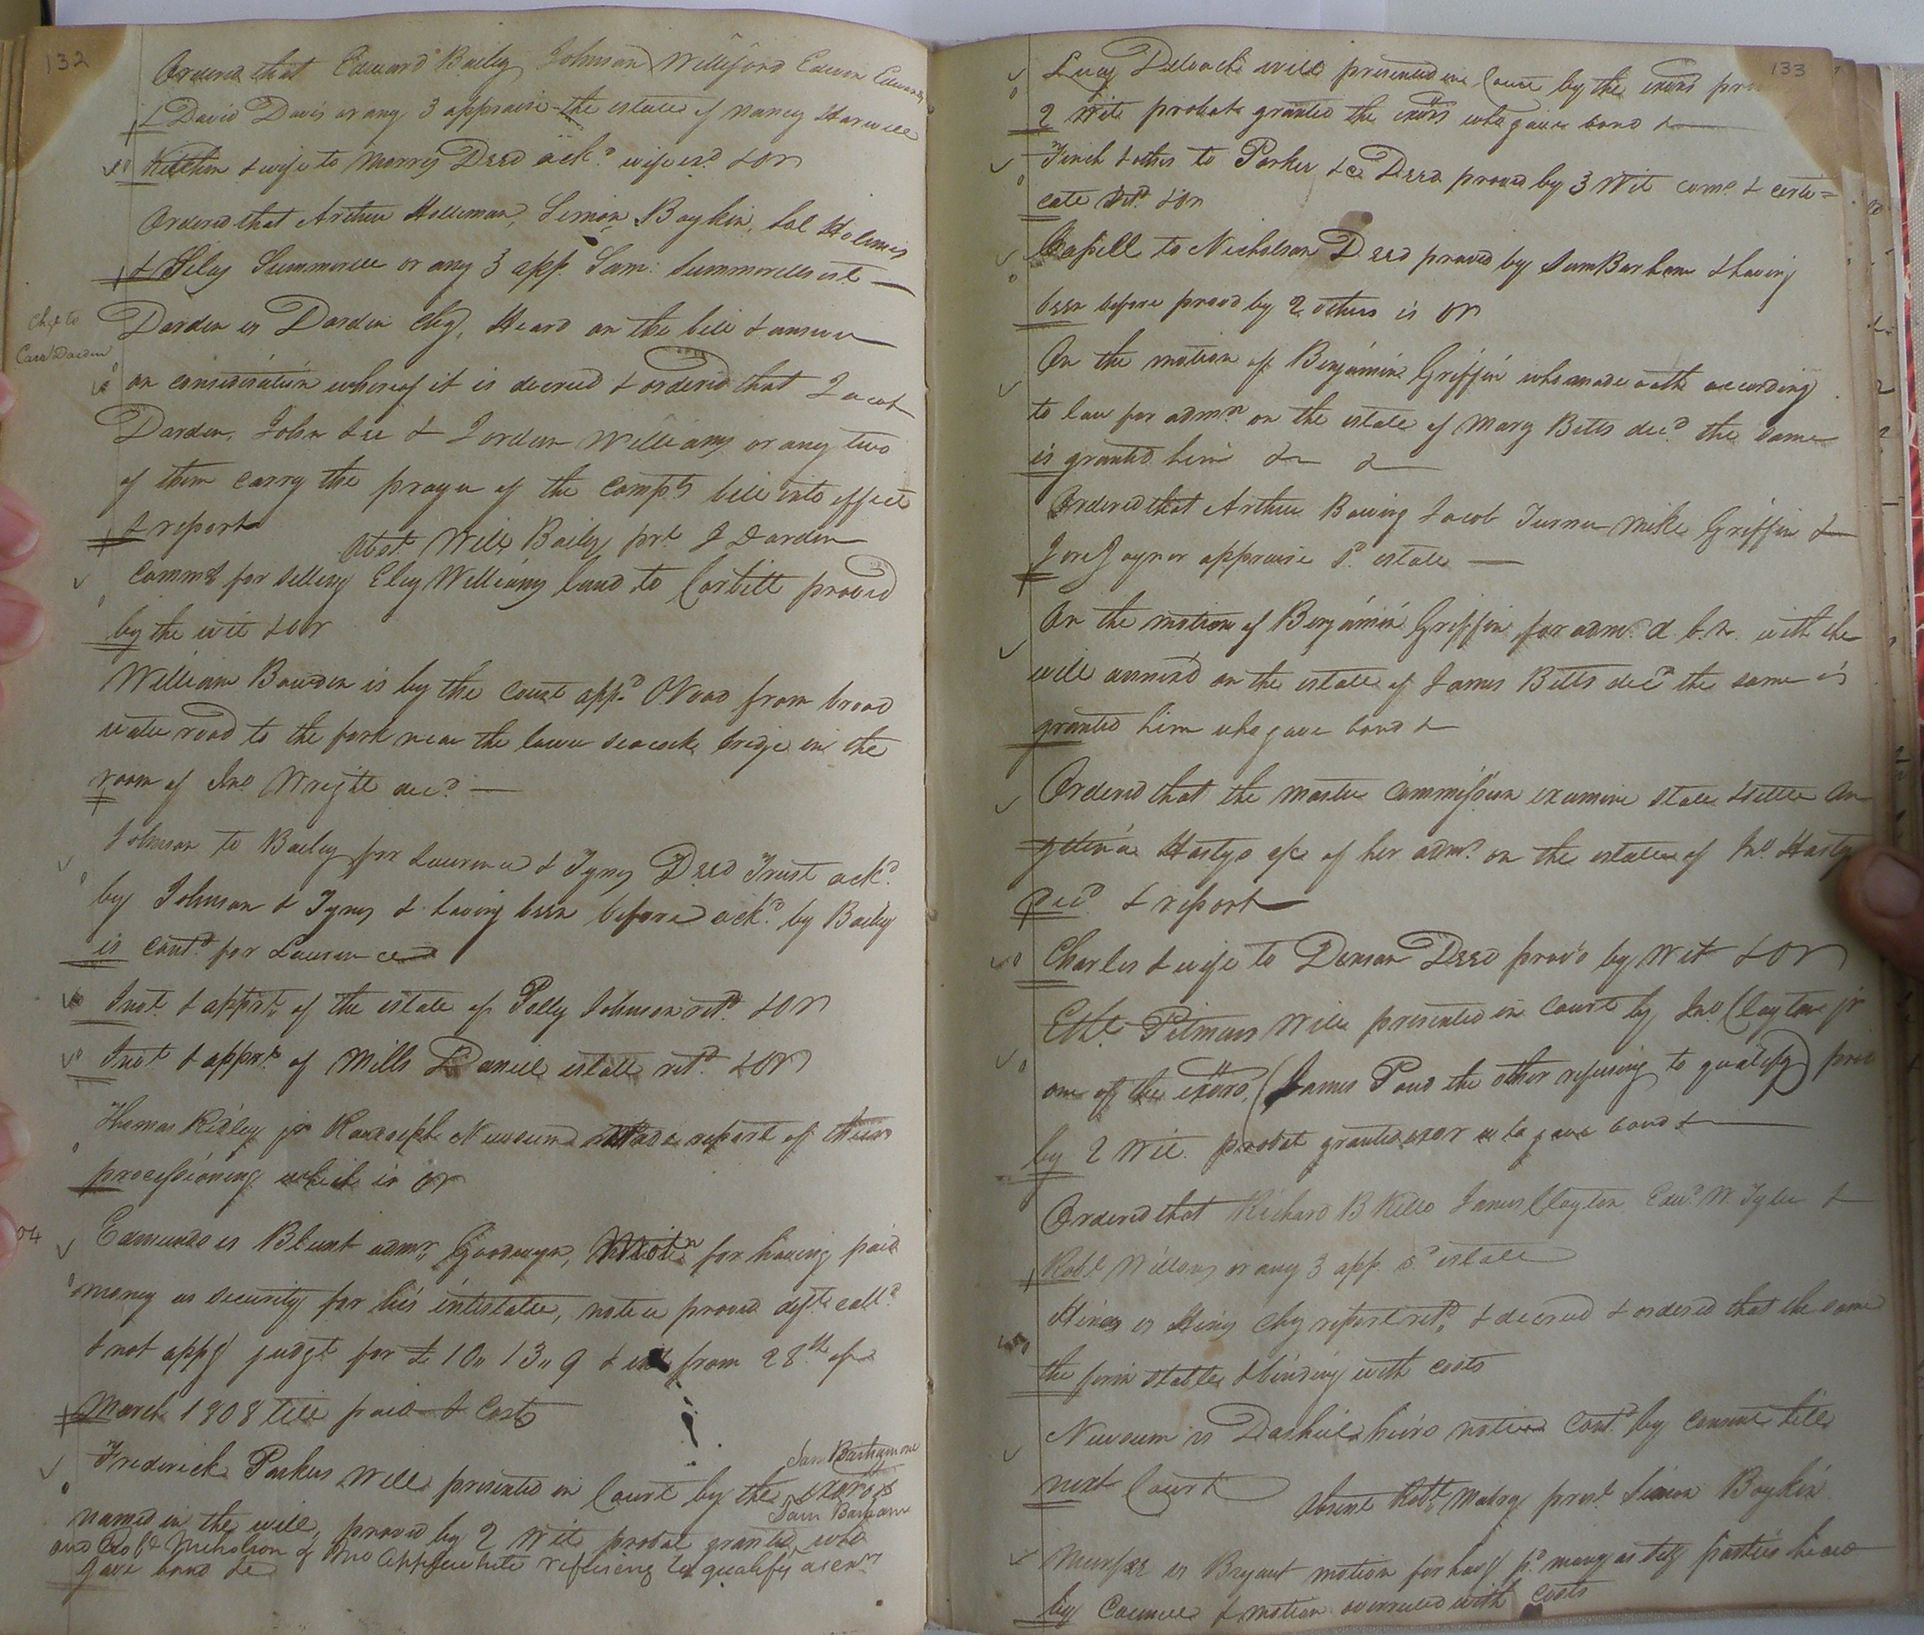 132
Ordered that Edward Bailey Johnson Williford Edwin Edwards
& David Davis or any 3 appraise the estate of Nancy Harwell
Kitchen & wife to Morris Deed ack.d wife ex.d & OR
Ordered that Arthur Holleman, Simon Boykin, Sol Holmes
& Silas Summerell or any 3 app. Sam: Summerells est
Darden vs Darden Chy. Heard on the bill & answer
Chgd to
Caro Darden
on consideration whereof it is decreed & ordered that Jacob
Darden, John Lee & Jordan Williams or any two
of them carry the prayer of the Compts bill into effect
& report
Abst. Will Bailey prt. J Darden
Comms for selling Eley Williams land to Corbitt proved
by the wit & OR
William Bowden is by the court app.d O. Road from broad
water road to the fork near the lower seacock bridge in the
room of Jno Wright dec.d
Johnson to Bailey for Laurence & Tynes Deed Trust ack.d
by Johnson & Tynes & having been before ack.d by Bailey
is cont.d for Laurence
Invt & apprt. of the estate of Polly Johnson ret.d & OR
Invt & apprt. of Mills Daniel estate ret.d & OR
Thomas Ridley jr Newsum made report of their
processioning which is OR
04
Edmunds vs Blunt admr. Goodwyn, Motn for having paid
money as security for his intestate, notice proved deft. call.d
& not appg judgt for £ 10 " 13 " 9 & int from 28.th of
March 1808 till paid & Costs
Frederick Parkers Will presented in Court by the Sam Barham one exors
named in the will, proved by 2 Wits probat granted Sam Barham who
and Rob.t Nicholson & Jno Applewhite refusing to qualify as exrs
gave bond &c
133
Lucy Deloach will presented in Court by the exors
2 Wits probate granted the exors who gave bond &
Finch & others to Parker &c Deed proved by 3 Wit com.n & certi=
cate ret.d & OR
Capell to Nicholson Deed proved by Sam Barham & having
been before proved by 2 others is OR
On the motion of Benjamin Griffin who made oath according
to law for admn on the estate of Mary Betts dec.d the same
is granted him & &
Ordered that Arthur Jacob Turner Mike Griffin &
Jere Joyner appraise s.d estate
On the motion of Benjamin Griffin for adm.n d. b. n. with the
will annexd on the estate of James Betts dec.d the same is
granted him who gave bond &
Ordered that the master Commissioner examine state & settle An
gelina Hastys a/c of her adm.n on the estate of Jno. Hasty
dec.d & report
Charles & wife to Denson Deed prov'd by Wit & OR
Eth.d Pitmans Will presented in Court by Jno Clayton jr
one of the exors, (James Pond the other refusing to qualify) prov
by 2 Wit. probat granted exor who gave bond &
Ordered that Richard B Kello James Clayton Edw.d W. Tyler &
Rob.t Williams or any 3 app. s.d estate
Hines vs Hines Chy report ret.d, & decreed & ordered that the same
the firm stable & binding with costs
Newsum vs Dashiel heirs notice Cont.d by consent till
next Court
Absent Rob.t Mabry prest Simon Boykin
vs Bryant motion for havg p.d money as secy parties heard
by Council & motion overruled with costs